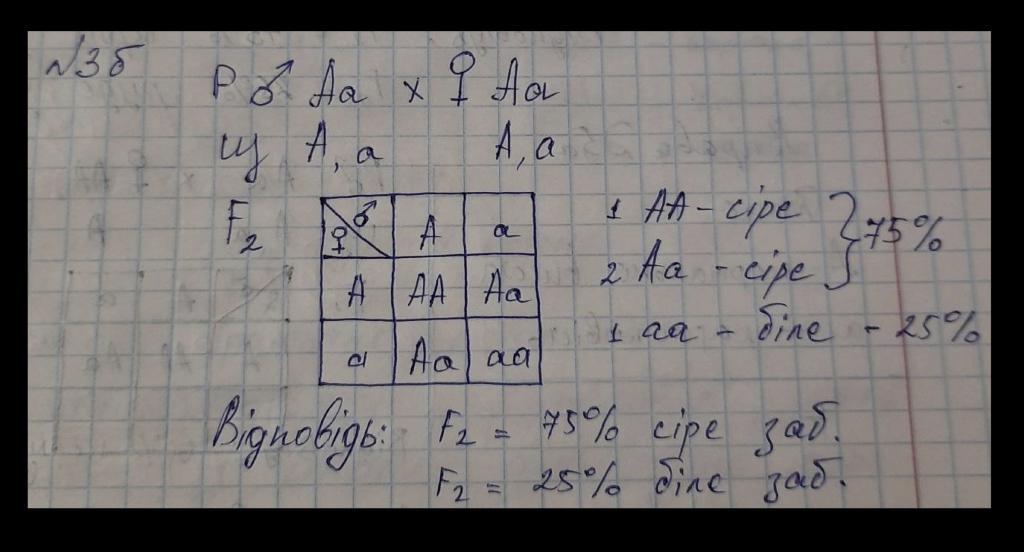 №3б
P ♂ Aa x ♀ Aa
A, a A, a
F₂ ♀ ♂ A a
A AA Aa
a Aa aa
1 AA - сіре
2 Aa - сіре } 75%
1 aa - біле - 25%
Відповідь: F₂ = 75% сіре заб.
F₂ = 25% біле заб.